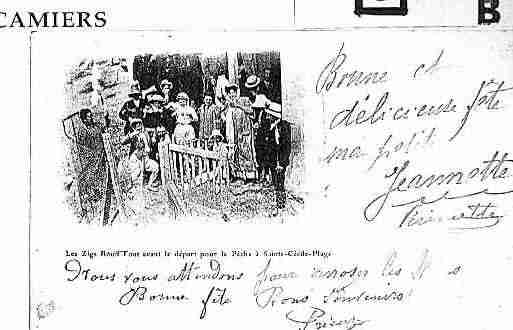 CAMIERS
B
Bonne et
délicieuse fête
ma petite
Jeannette
Les Zigs Rouff'Tout avant le départ pour la Pêche à Sainte-Cécile-Plage
Nous vous attendons pour arroser les
Bonne fête Bons Souvenirs